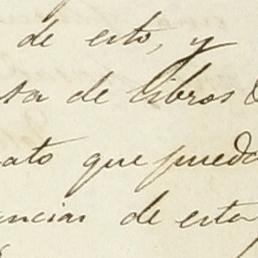 de esto, y
sta de libros
ato que pueda
ancias de esta